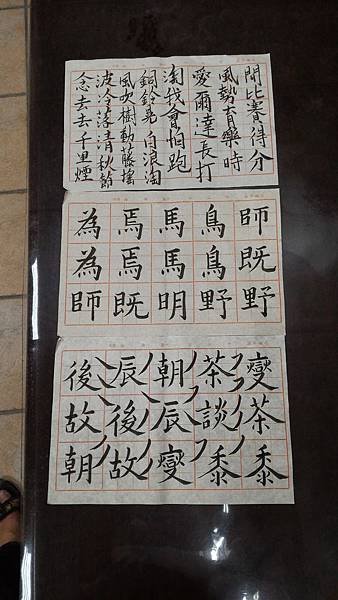 比賽得分
風勢育樂時
愛爾達長打
淘會怕跑
銅鈴白浪淘
風吹樹動藤搖
波冷落清秋節
念去去千里煙
師既野
鳥鳥野
馬馬明
焉焉既
為為師
變茶黍
茶談黍
朝辰變
辰後故
後故朝